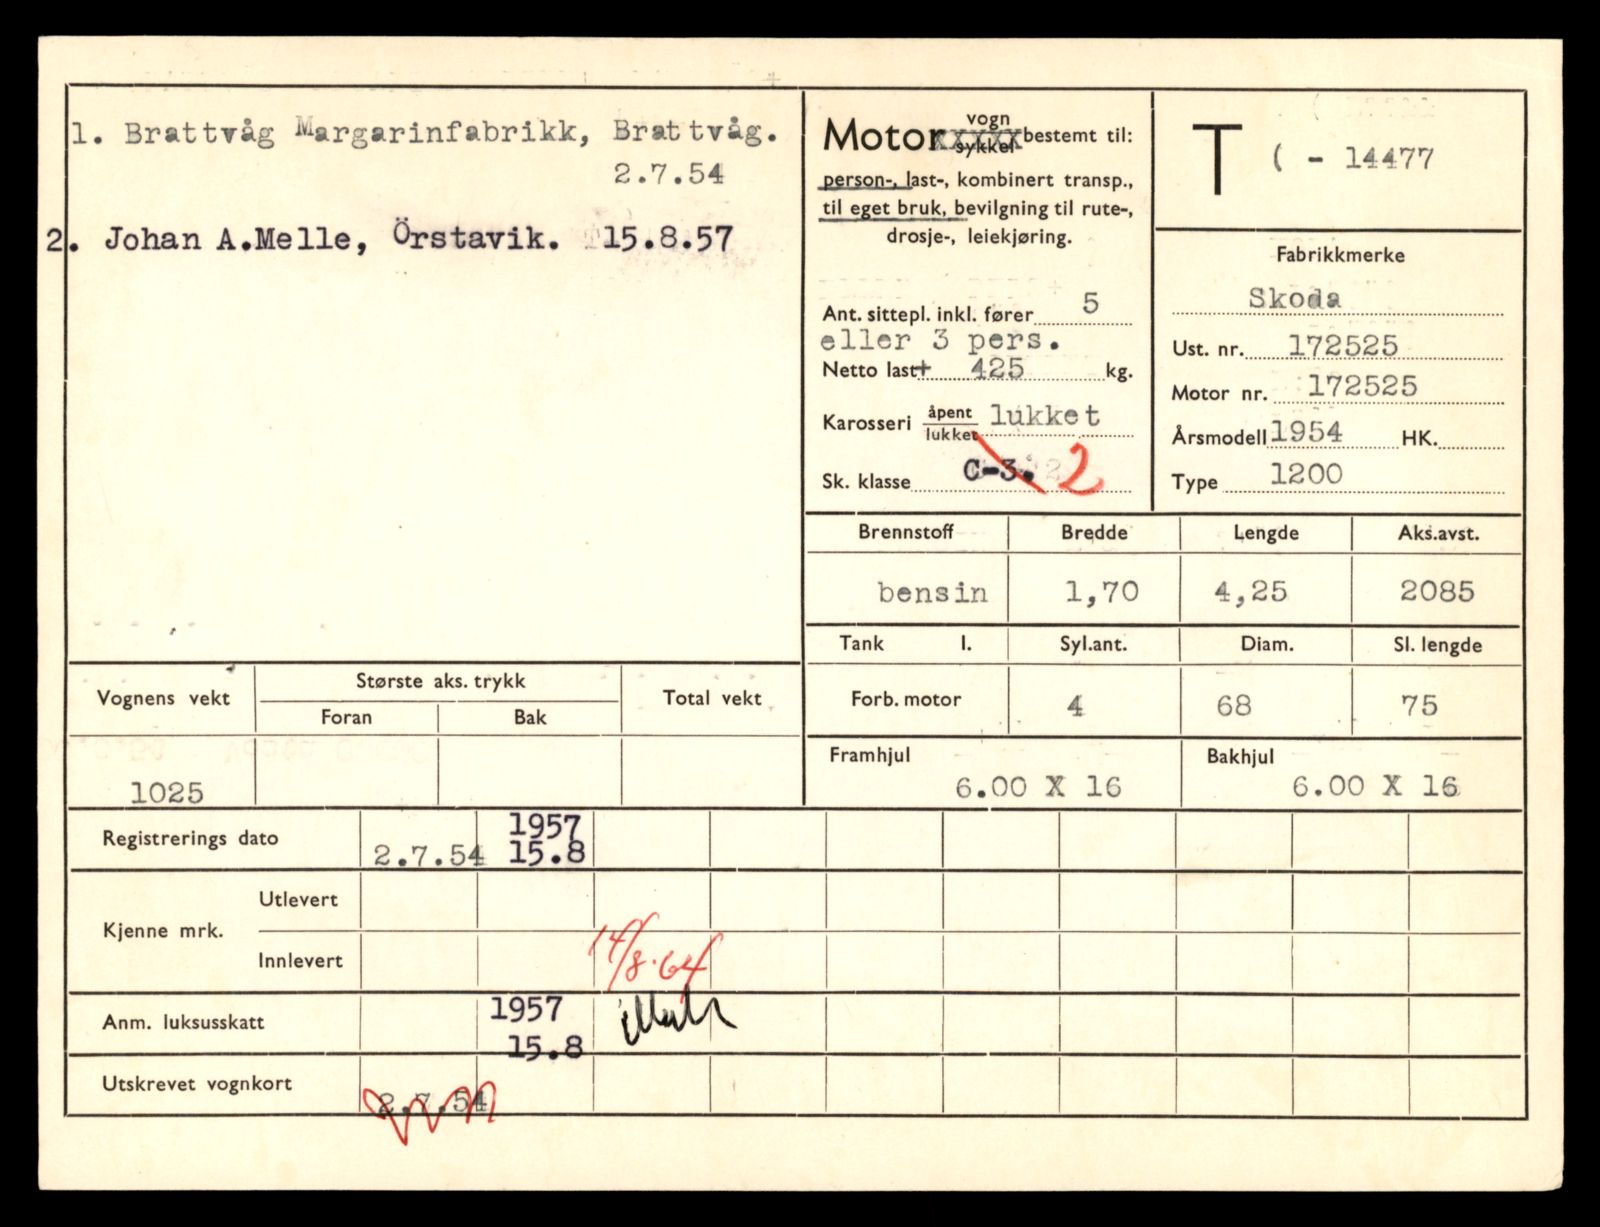 1. Brattvåg Margarinfabrikk, Brattvåg.
2.7.54
2. Johan A.Melle, Örstavik. 15.8.57
Motor vogn sykkel bestemt til:
person-, last-, kombinert transp.,
til eget bruk, bevilgning til rute-,
drosje-, leiekjøring.
Ant. sittepl. inkl. fører 5
eller 3 pers.
Netto last + 425 kg.
Karosseri åpent lukket lukket
Sk. klasse C-3. 2
T ( - 14477
Fabrikkmerke
Skoda
Ust. nr. 172525
Motor nr. 172525
Årsmodell 1954 HK.
Type 1200
Brennstoff Bredde Lengde Aks.avst.
bensin 1,70 4,25 2085
Tank l. Syl.ant. Diam. Sl. lengde
Forb. motor 4 68 75
Framhjul Bakhjul
6.00 X 16 6.00 X 16
Vognens vekt Største aks. trykk Total vekt
Foran Bak
1025
Registrerings dato 2.7.54 1957 15.8
Kjenne mrk. Utlevert
Innlevert 14/8.64
Anm. luksusskatt 1957
15.8
Utskrevet vognkort 2.7.54